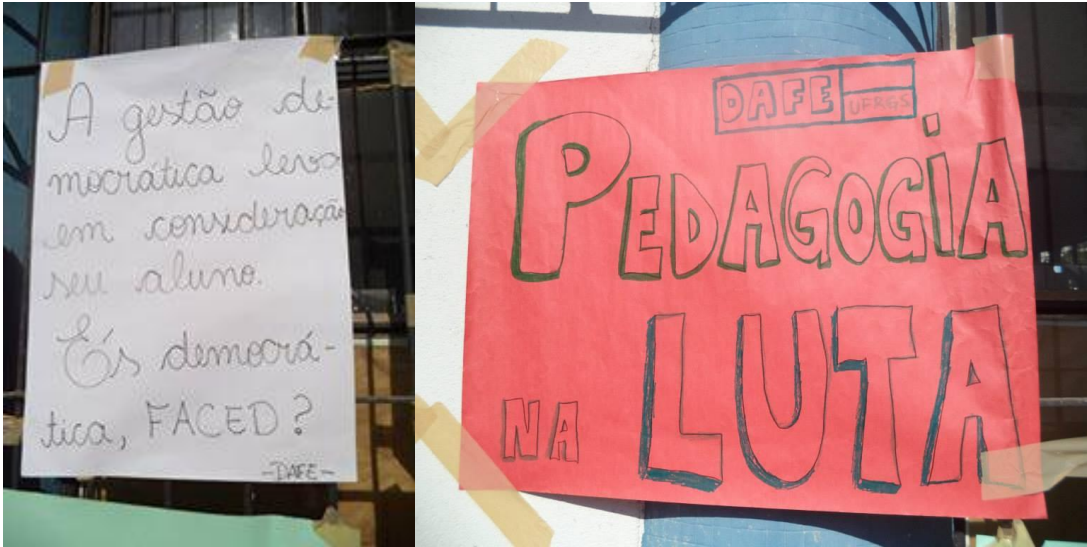 A gestão de-
mocrática leva
em consideração
seu aluno.
És democrá-
tica, FACED?
-DAFE-
DAFE
UFRGS
PEDAGOGIA
NA LUTA